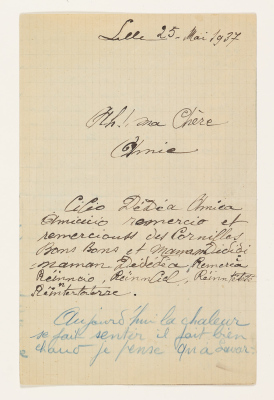 Lille 25 - Mai 1937
Ah! ma Chère
Amie
CiCio Dédia Amica
Amicicio remercio et
remerciouts des Cornilles
Bons Bons et Maman Didisi
maman Dédédia Remeria
Réinncio, Réinnciol, Réinntotote
Réintertoterre.
Aujourd'hui la chaleur
se fait sentir il fait bien
chaud je pense qu'a